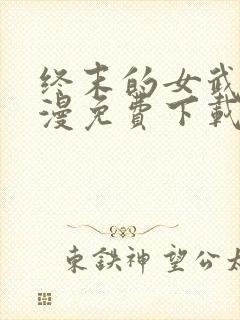 终末的女武
漫免費下載
東鉄神望公太